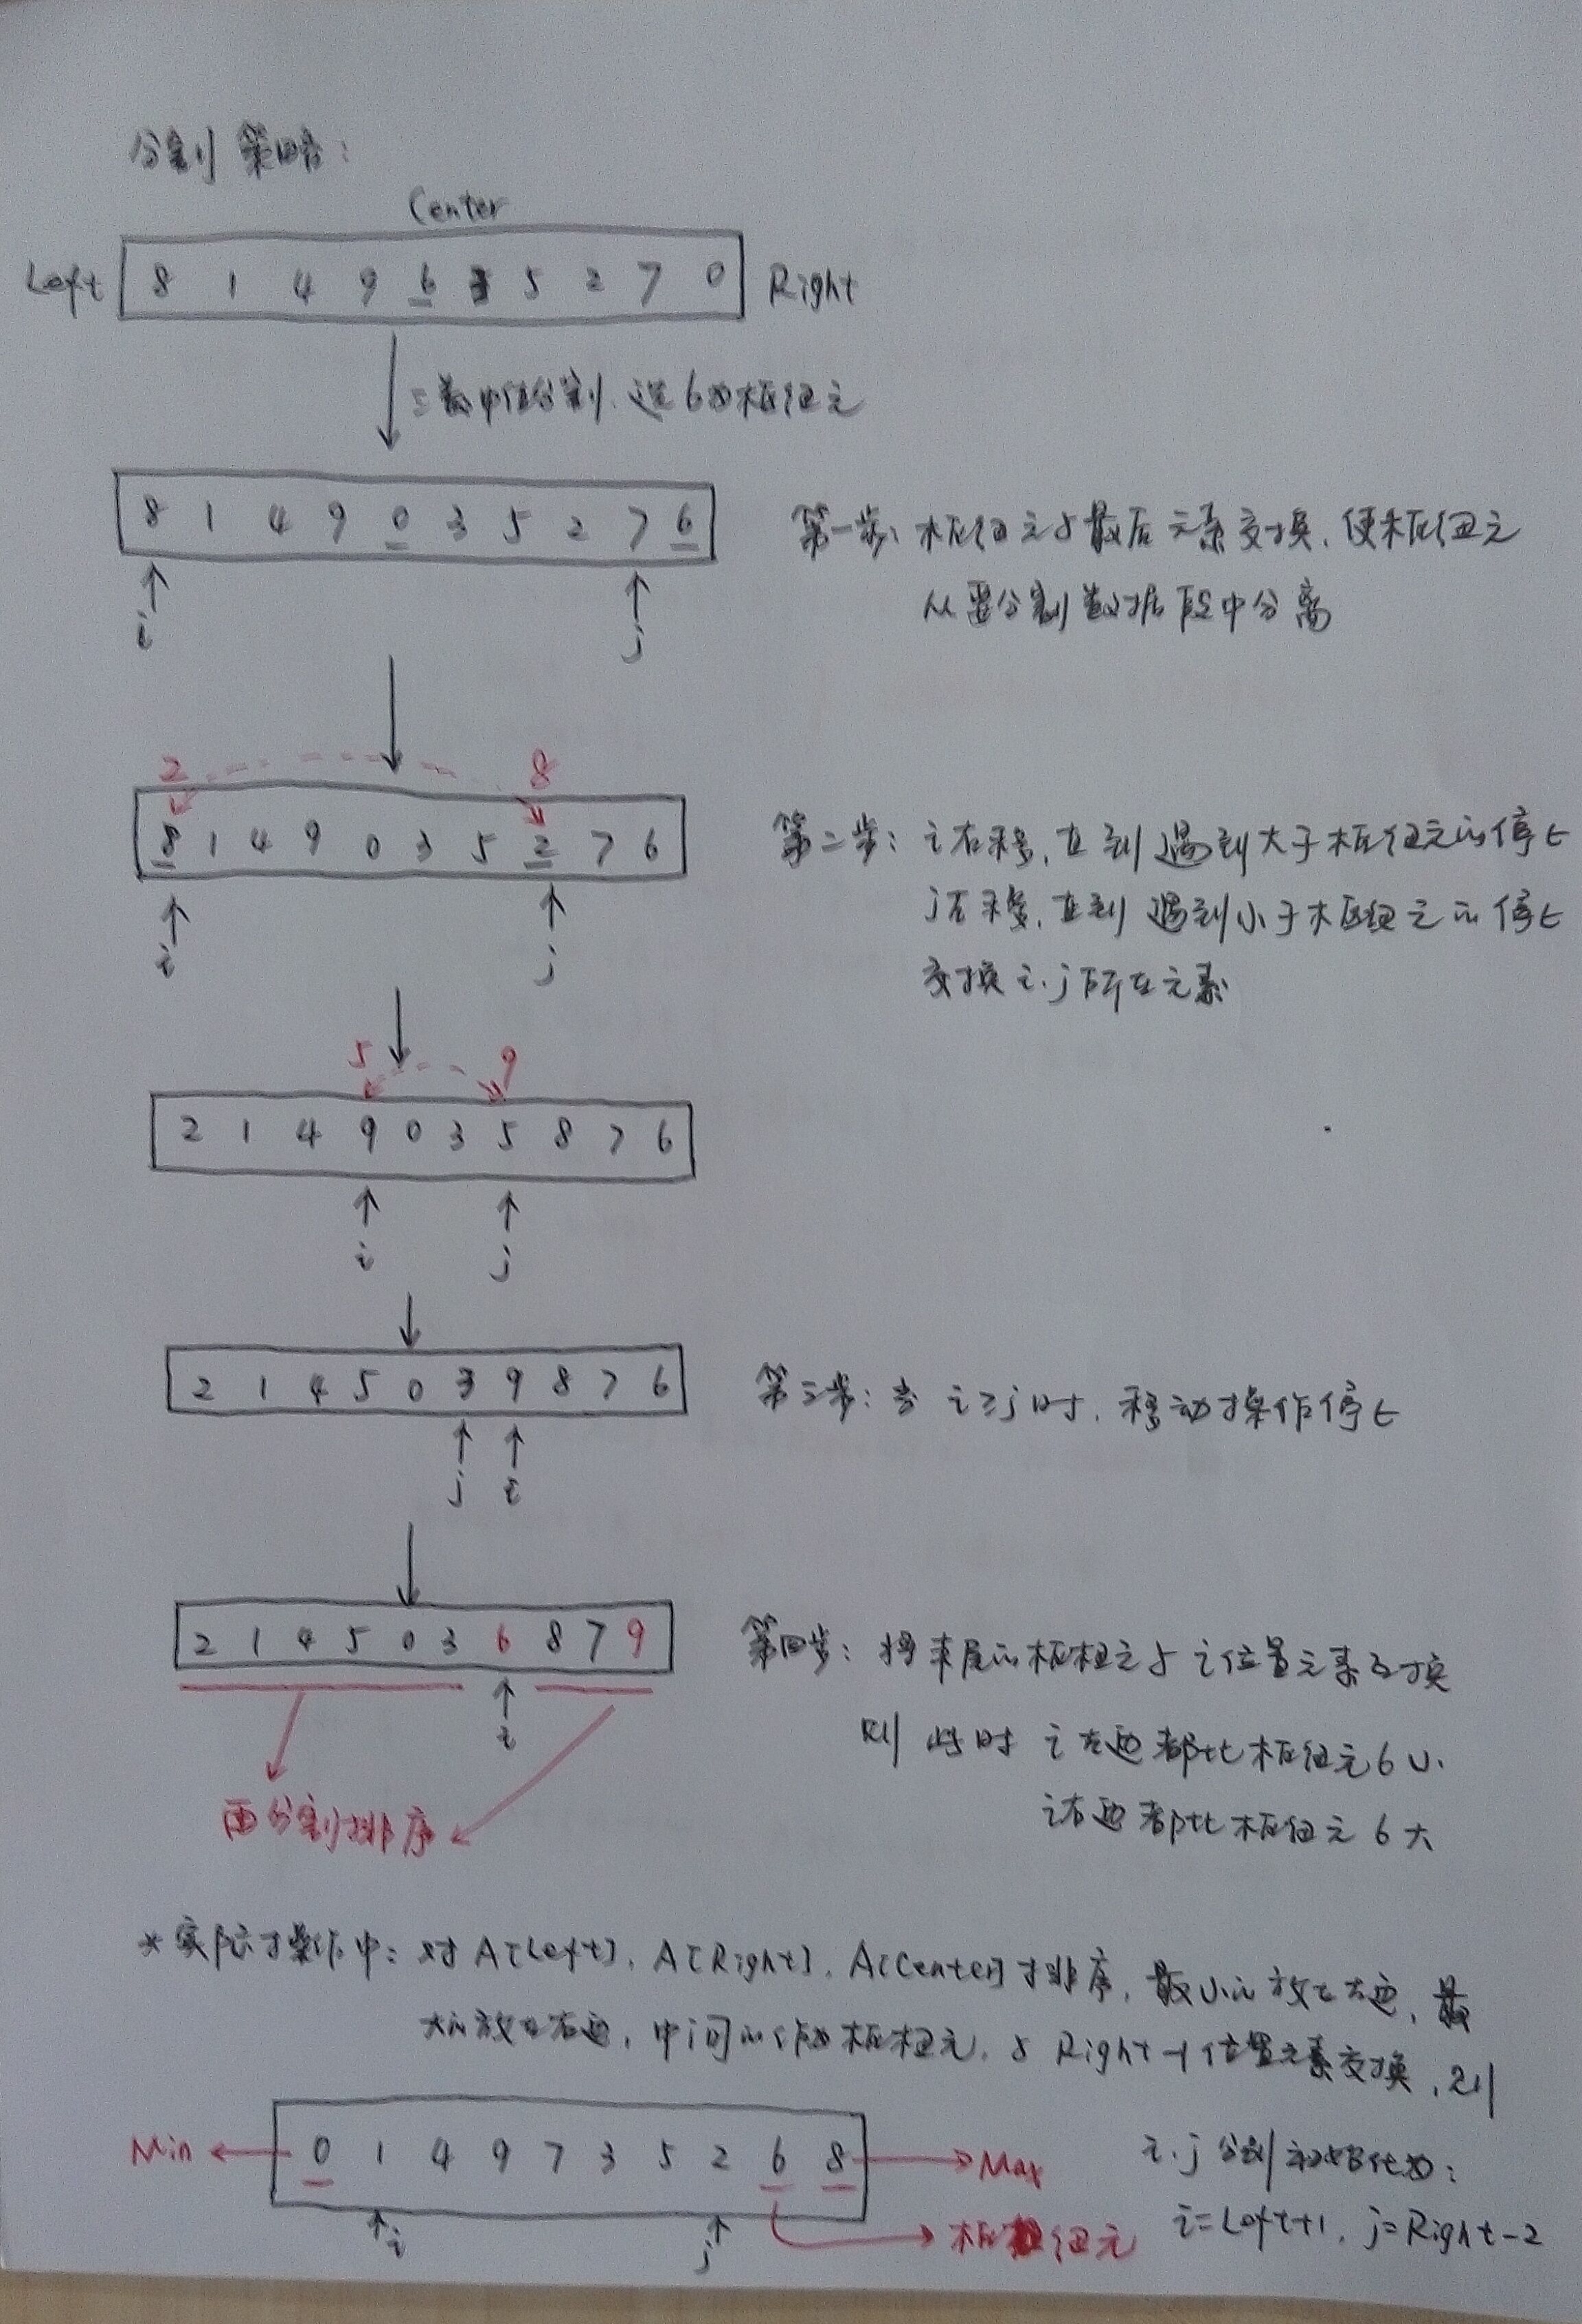 分割策略：
Center
Left 8 1 4 9 6 3 5 2 7 0 Right
三数中值分割，选6为枢纽元
8 1 4 9 0 3 5 2 7 6
i j
第一步：枢纽元与最后元素交换，使枢纽元
从要分割数据段中分离
2 8
8 1 4 9 0 3 5 2 7 6
i j
第二步：i右移，直到遇到大于枢纽元的停止
j左移，直到遇到小于枢纽元的停止
交换i.j所在元素
5 9
2 1 4 9 0 3 5 8 7 6
i j
2 1 4 5 0 3 9 8 7 6
j i
第三步：当 i≥j时，移动操作停止
2 1 4 5 0 3 6 8 7 9
i
第四步：将末尾的枢纽元与i位置元素交换
则此时 i左边都比枢纽元6小，
i右边都比枢纽元6大
两分割排序
*实际操作中：对A[Left]，A[Right]，A[Center]排序，最小的放在左边，最
大的放在右边，中间的作为枢纽元，与Right-1位置元素交换，则
Min 0 1 4 9 7 3 5 2 6 8 Max
i j
枢纽元
i.j分别初始化为：
i=Left+1，j=Right-2